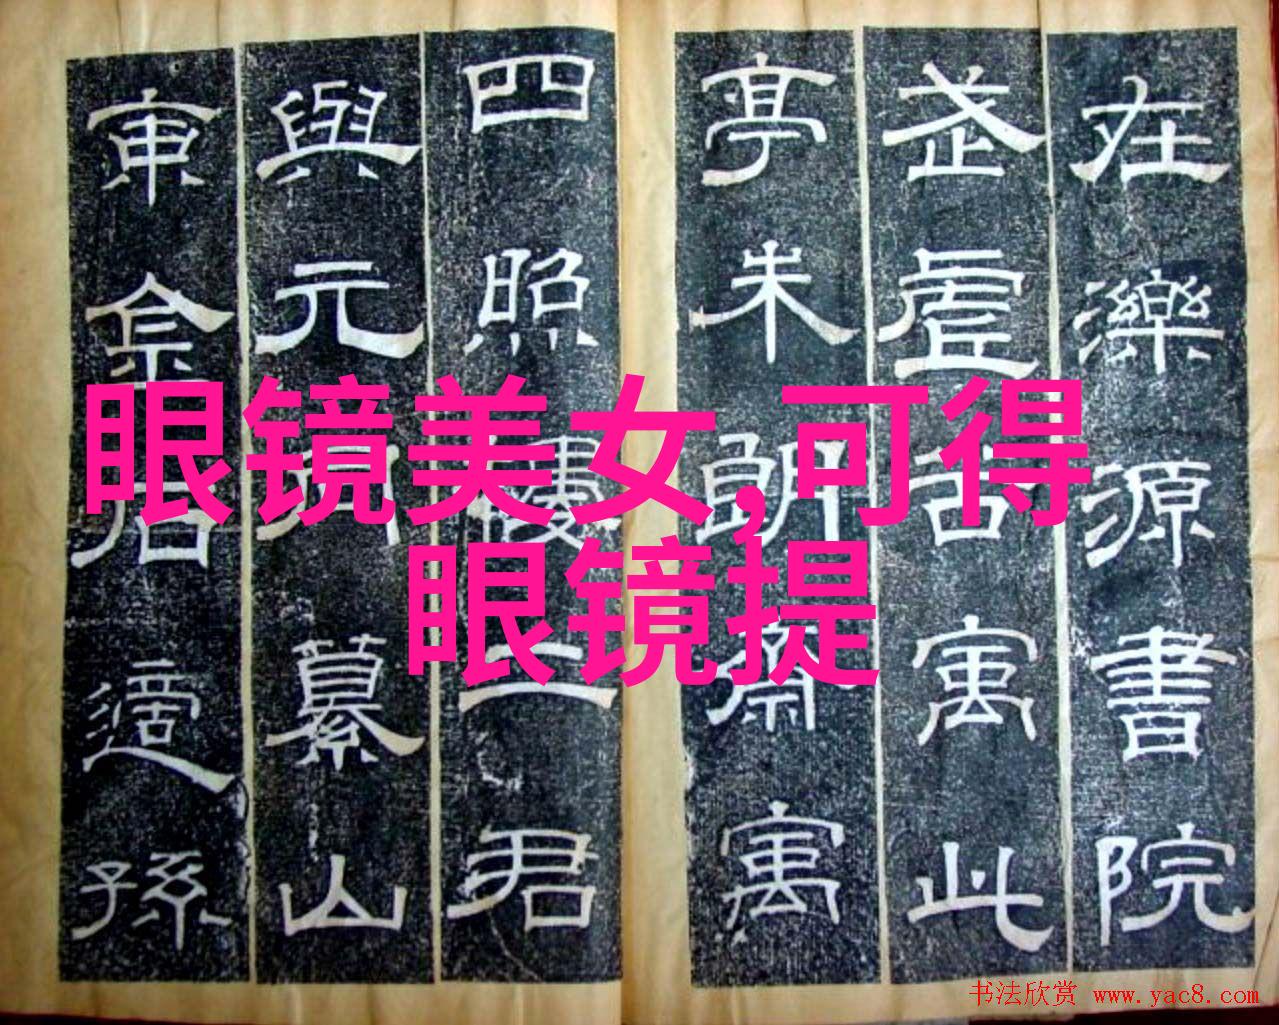 眼镜美女,可得
眼镜提
在濼源書院
武虛谷寓此
亭朱朗齋寓
四照樓二君
與元同纂山
東金石適孫
书法欣赏 www.yac8.com